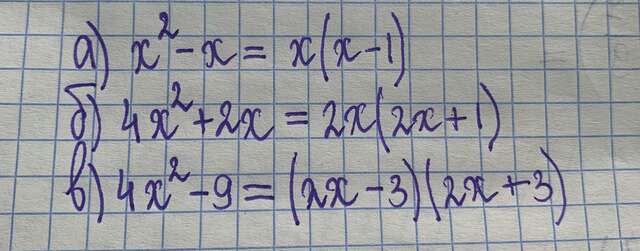 а) x² - x = x(x - 1)
б) 4x² + 2x = 2x(2x + 1)
в) 4x² - 9 = (2x - 3)(2x + 3)